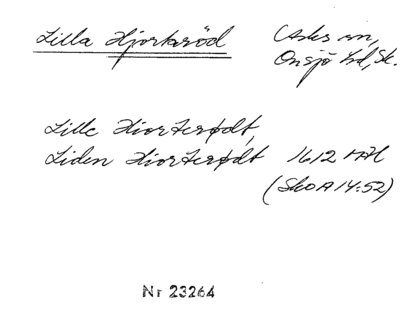 Lilla Hjorteröd Asks sn,
Onsjö hd, Sk.
Lille Hiorterødt,
Liden Hiorterødt 1612
(Sko A 14:52)
Nr 23264